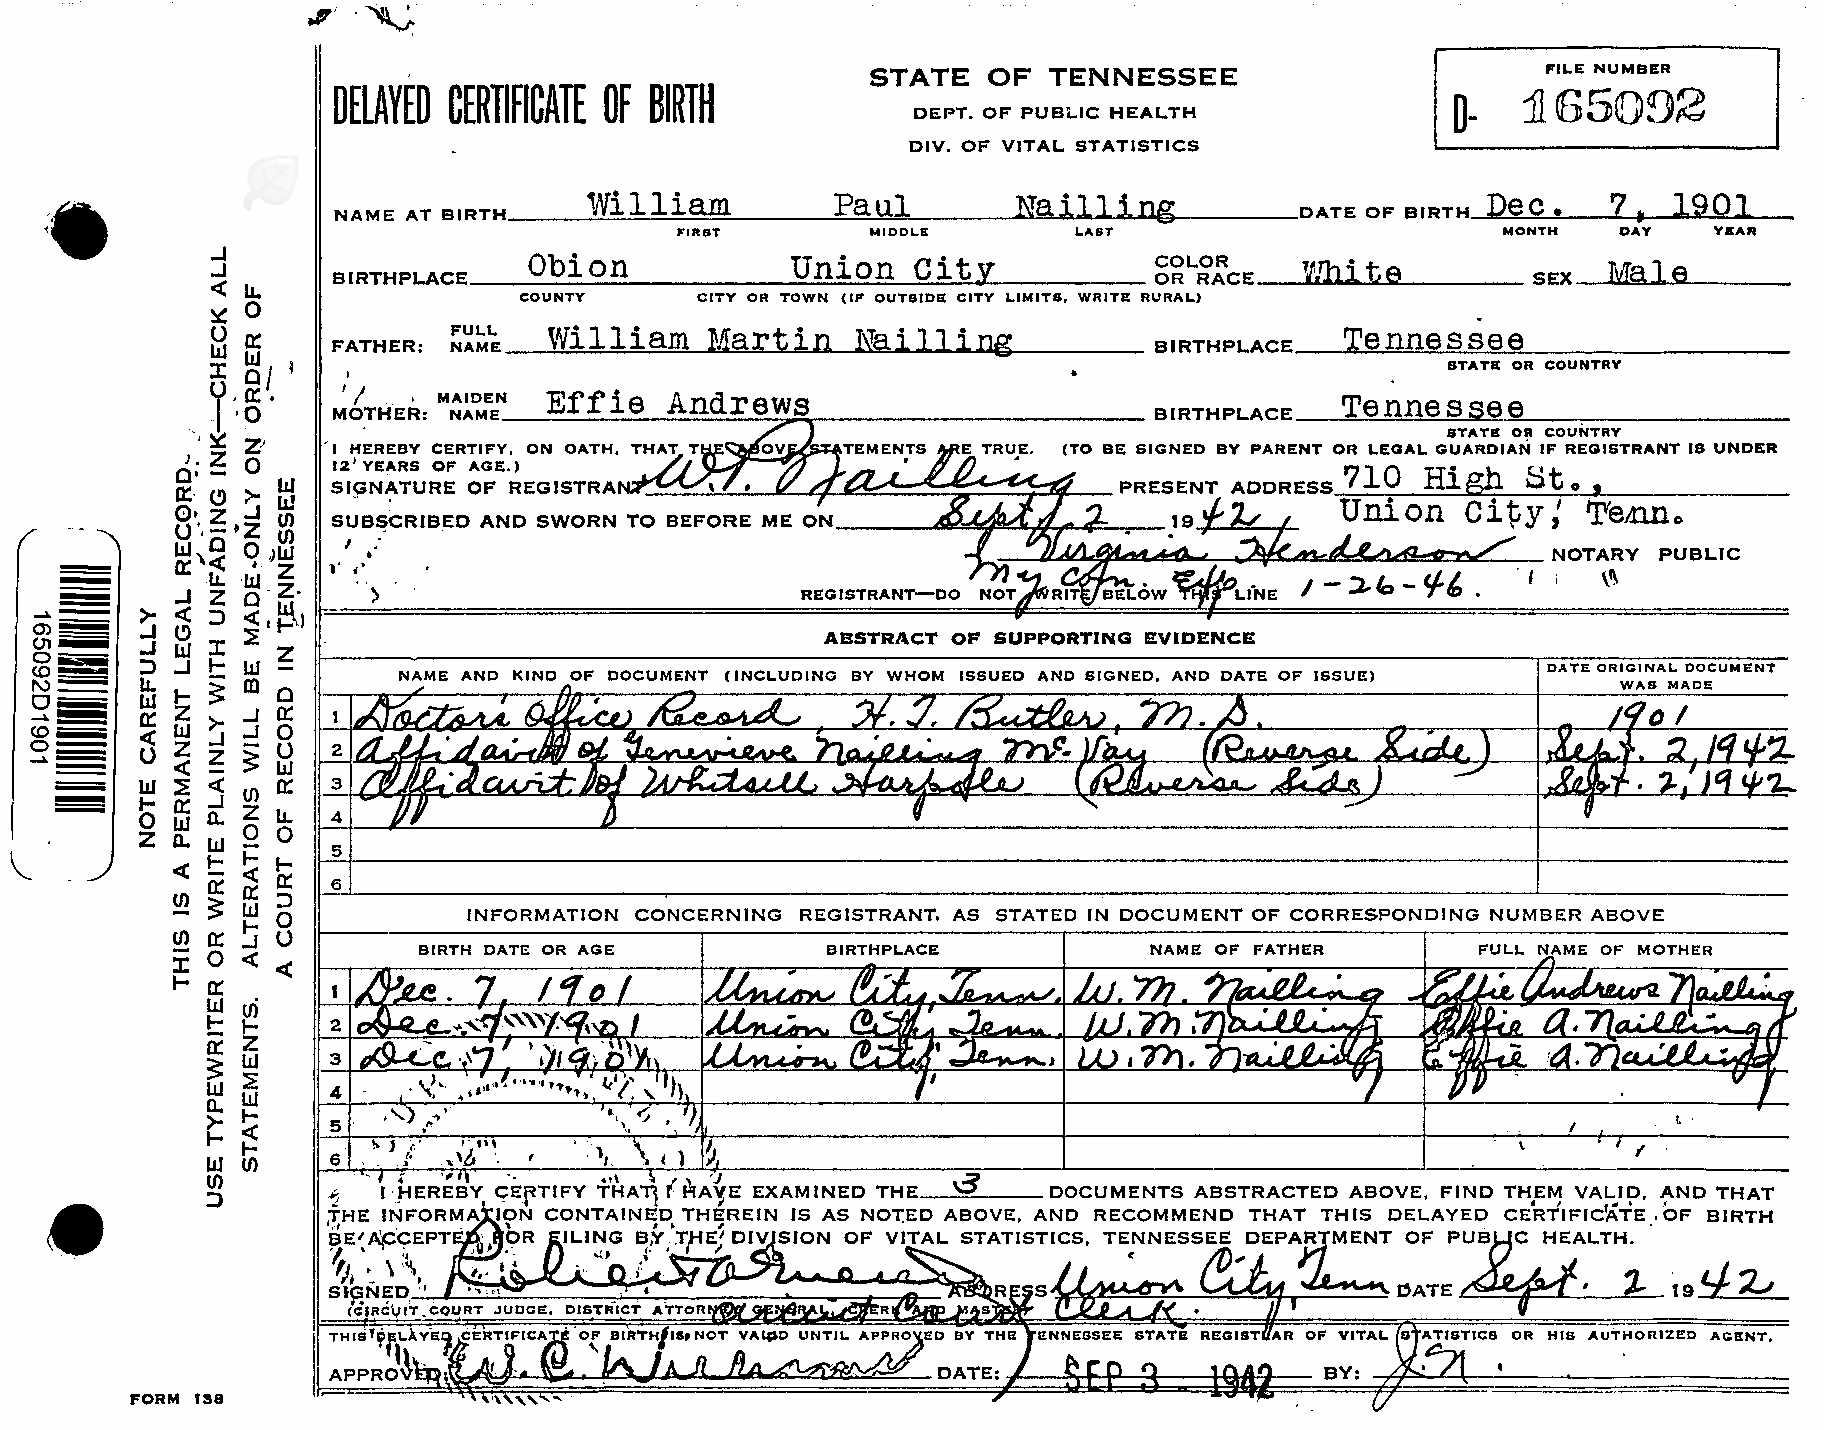 DELAYED CERTIFICATE OF BIRTH
STATE OF TENNESSEE
DEPT. OF PUBLIC HEALTH
DIV. OF VITAL STATISTICS
FILE NUMBER
D- 165092
NAME AT BIRTH William Paul Nailling DATE OF BIRTH Dec. 7, 1901
FIRST MIDDLE LAST MONTH DAY YEAR
BIRTHPLACE Obion Union City COLOR OR RACE White SEX Male
COUNTY CITY OR TOWN (IF OUTSIDE CITY LIMITS, WRITE RURAL)
FATHER: FULL NAME William Martin Nailling BIRTHPLACE Tennessee
STATE OR COUNTRY
MOTHER: MAIDEN NAME Effie Andrews BIRTHPLACE Tennessee
STATE OR COUNTRY
I HEREBY CERTIFY, ON OATH, THAT THE ABOVE STATEMENTS ARE TRUE. (TO BE SIGNED BY PARENT OR LEGAL GUARDIAN IF REGISTRANT IS UNDER
12 YEARS OF AGE.)
SIGNATURE OF REGISTRANT W.P. Nailling PRESENT ADDRESS 710 High St.,
SUBSCRIBED AND SWORN TO BEFORE ME ON Sept. 2 1942 Union City, Tenn.
Virginia Henderson NOTARY PUBLIC
My Com. Exp. 1-26-46.
REGISTRANT—DO NOT WRITE BELOW THIS LINE
ABSTRACT OF SUPPORTING EVIDENCE
NAME AND KIND OF DOCUMENT (INCLUDING BY WHOM ISSUED AND SIGNED, AND DATE OF ISSUE) DATE ORIGINAL DOCUMENT WAS MADE
1 Doctor's Office Record, H.T. Butler, M.D. 1901
2 Affidavit of Genevieve Nailling McVay (Reverse Side) Sept. 2, 1942
3 Affidavit of Whitsell Harpole (Reverse Side) Sept. 2, 1942
4
5
6
INFORMATION CONCERNING REGISTRANT, AS STATED IN DOCUMENT OF CORRESPONDING NUMBER ABOVE
BIRTH DATE OR AGE BIRTHPLACE NAME OF FATHER FULL NAME OF MOTHER
1 Dec. 7, 1901 Union City, Tenn. W.M. Nailling Effie Andrews Nailling
2 Dec. 7, 1901 Union City, Tenn. W.M. Nailling Effie A. Nailling
3 Dec. 7, 1901 Union City, Tenn. W.M. Nailling Effie A. Nailling
4
5
6
I HEREBY CERTIFY THAT I HAVE EXAMINED THE 3 DOCUMENTS ABSTRACTED ABOVE, FIND THEM VALID, AND THAT
THE INFORMATION CONTAINED THEREIN IS AS NOTED ABOVE, AND RECOMMEND THAT THIS DELAYED CERTIFICATE OF BIRTH
BE ACCEPTED FOR FILING BY THE DIVISION OF VITAL STATISTICS, TENNESSEE DEPARTMENT OF PUBLIC HEALTH.
SIGNED ADDRESS Union City, Tenn DATE Sept. 2 1942
(CIRCUIT COURT JUDGE, DISTRICT ATTORNEY GENERAL, CLERK AND MASTER
Circuit Court Clerk.
THIS DELAYED CERTIFICATE OF BIRTH IS NOT VALID UNTIL APPROVED BY THE TENNESSEE STATE REGISTRAR OF VITAL STATISTICS OR HIS AUTHORIZED AGENT.
APPROVED: DATE: SEP 3 1942 BY: J.N.
FORM 138
NOTE CAREFULLY
THIS IS A PERMANENT LEGAL RECORD.
USE TYPEWRITER OR WRITE PLAINLY WITH UNFADING INK—CHECK ALL
STATEMENTS. ALTERATIONS WILL BE MADE ONLY ON ORDER OF
A COURT OF RECORD IN TENNESSEE
165092D1901